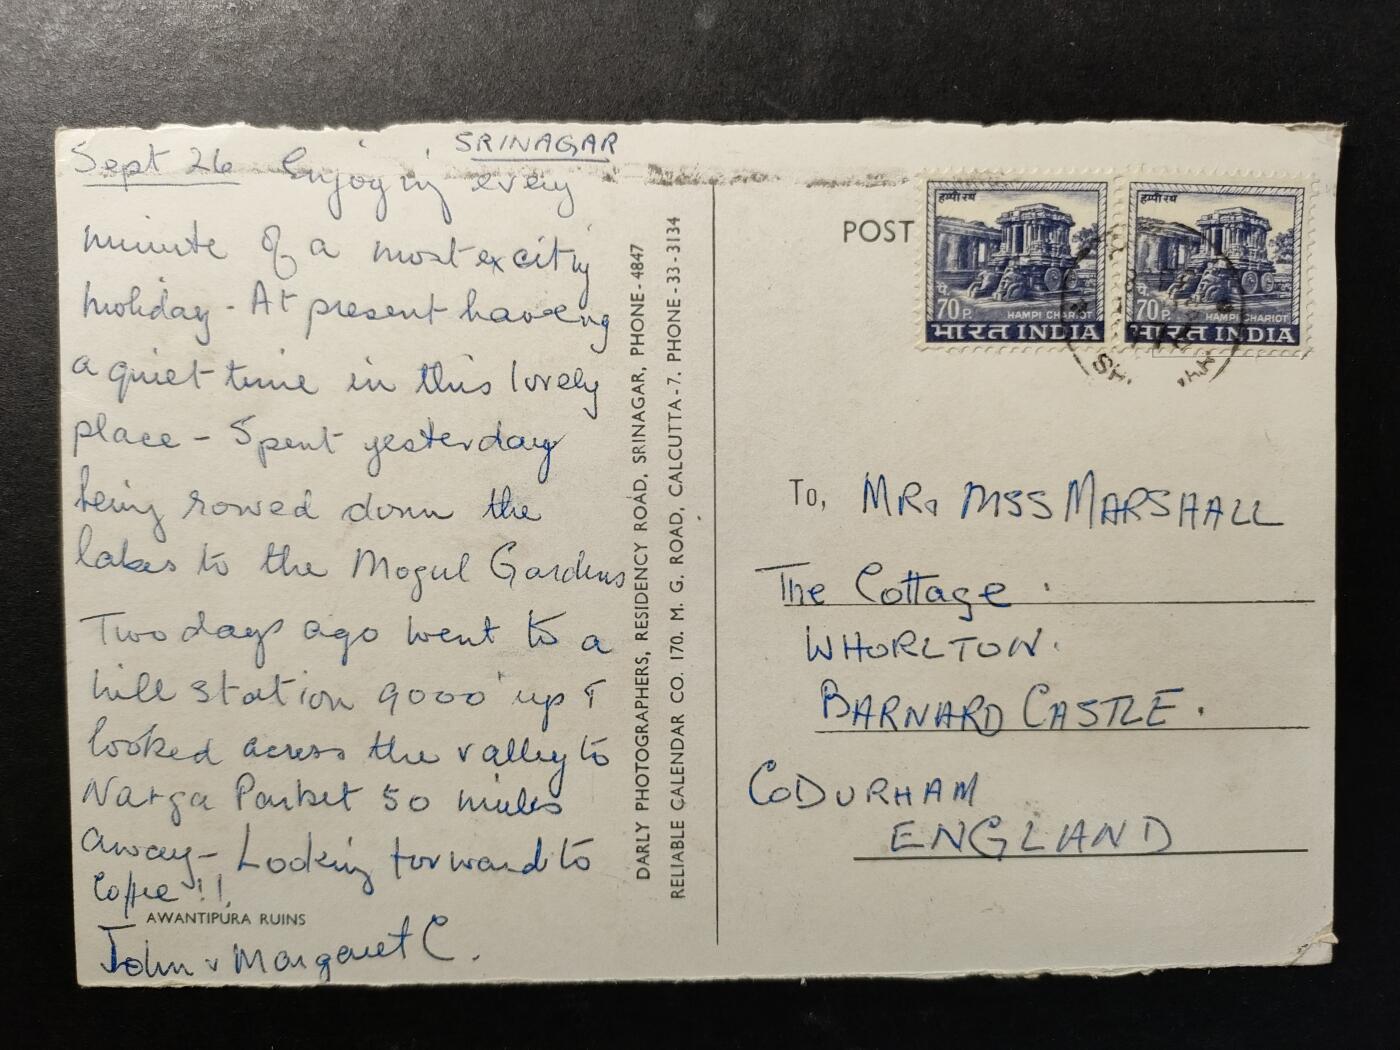 SRINAGAR
Sept 26 Enjoying every
minute of a most exciting
holiday - At present having
a quiet time in this lovely
place - Spent yesterday
being rowed down the
lakes to the Mogul Gardens
Two days ago went to a
hill station 9000' up &
looked across the valley to
Narga Parbet 50 miles
away - Looking forward to
Coffee !!
AWANTIPURA RUINS
John & Margaret C.
DARLY PHOTOGRAPHERS, RESIDENCY ROAD, SRINAGAR, PHONE - 4847
RELIABLE CALENDAR CO. 170. M. G. ROAD, CALCUTTA - 7. PHONE - 33 - 3134
POST
हम्पी रथ
पै.
70 P.
HAMPI CHARIOT
भारत INDIA
हम्पी रथ
पै.
70 P.
HAMPI CHARIOT
भारत INDIA
To, MR. MSS MARSHALL
The Cottage.
WHORLTON.
BARNARD CASTLE.
CO DURHAM
ENGLAND